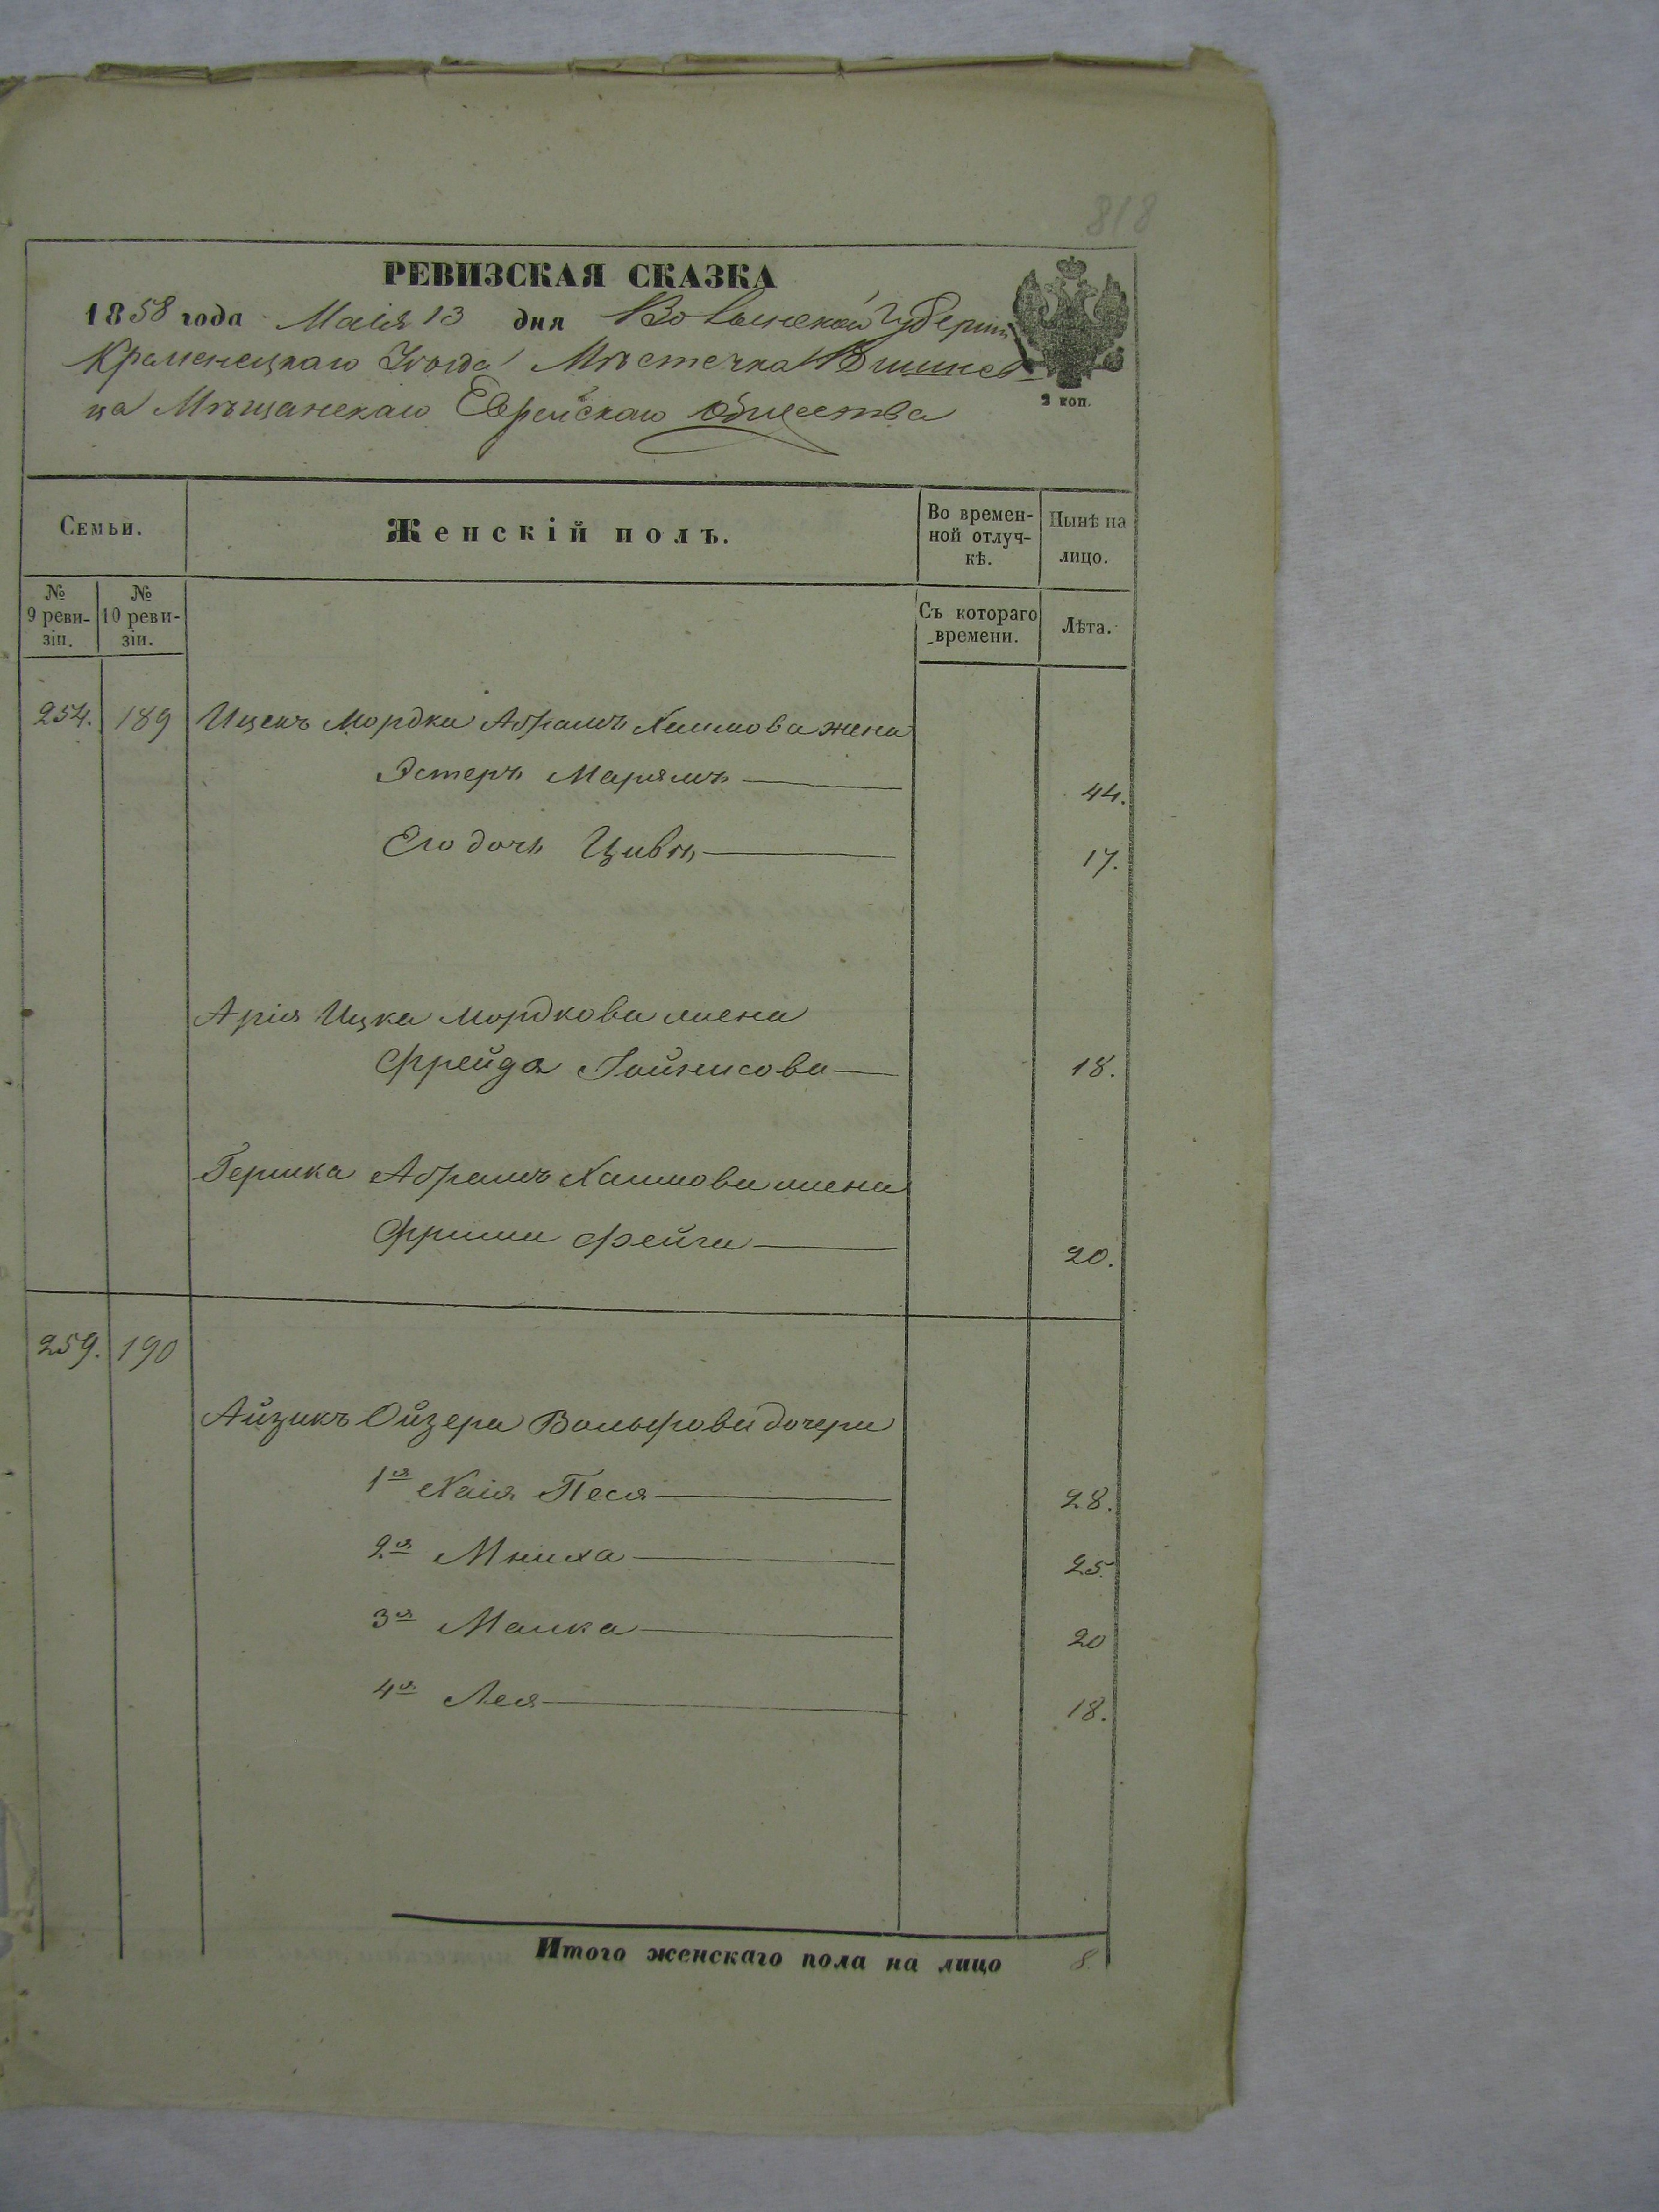 818
РЕВИЗСКАЯ СКАЗКА
1858 года Маія 13 дня Волынской Губерніи
Кременецкаго Уѣзда Мѣстечка Вишнев-
ца Мѣщанскаго Еврейскаго общества
2 коп.
Семьи.
Женскій полъ.
Во времен-
ной отлуч-
кѣ.
Нынѣ на
лицо.
№
9 реви-
зіи.
№
10 реви-
зіи.
Съ котораго
времени.
Лѣта.
254. 189 Ицекъ Мордки Абрамъ Хаимова жена
Эстеръ Марямъ 44.
Его дочь Цивья 17.
Арія Ицка Мордкова жена
Фрейда 18.
Гершка Абрамъ Хаимова жена
Фрима Фейга 20.
259. 190
Айзикъ Ойзера Вольфова дочери
1я Хаія Песя 28.
2я Мниха 25.
3я Малка 20
4я Лея 18.
Итого женскаго пола на лицо 8.